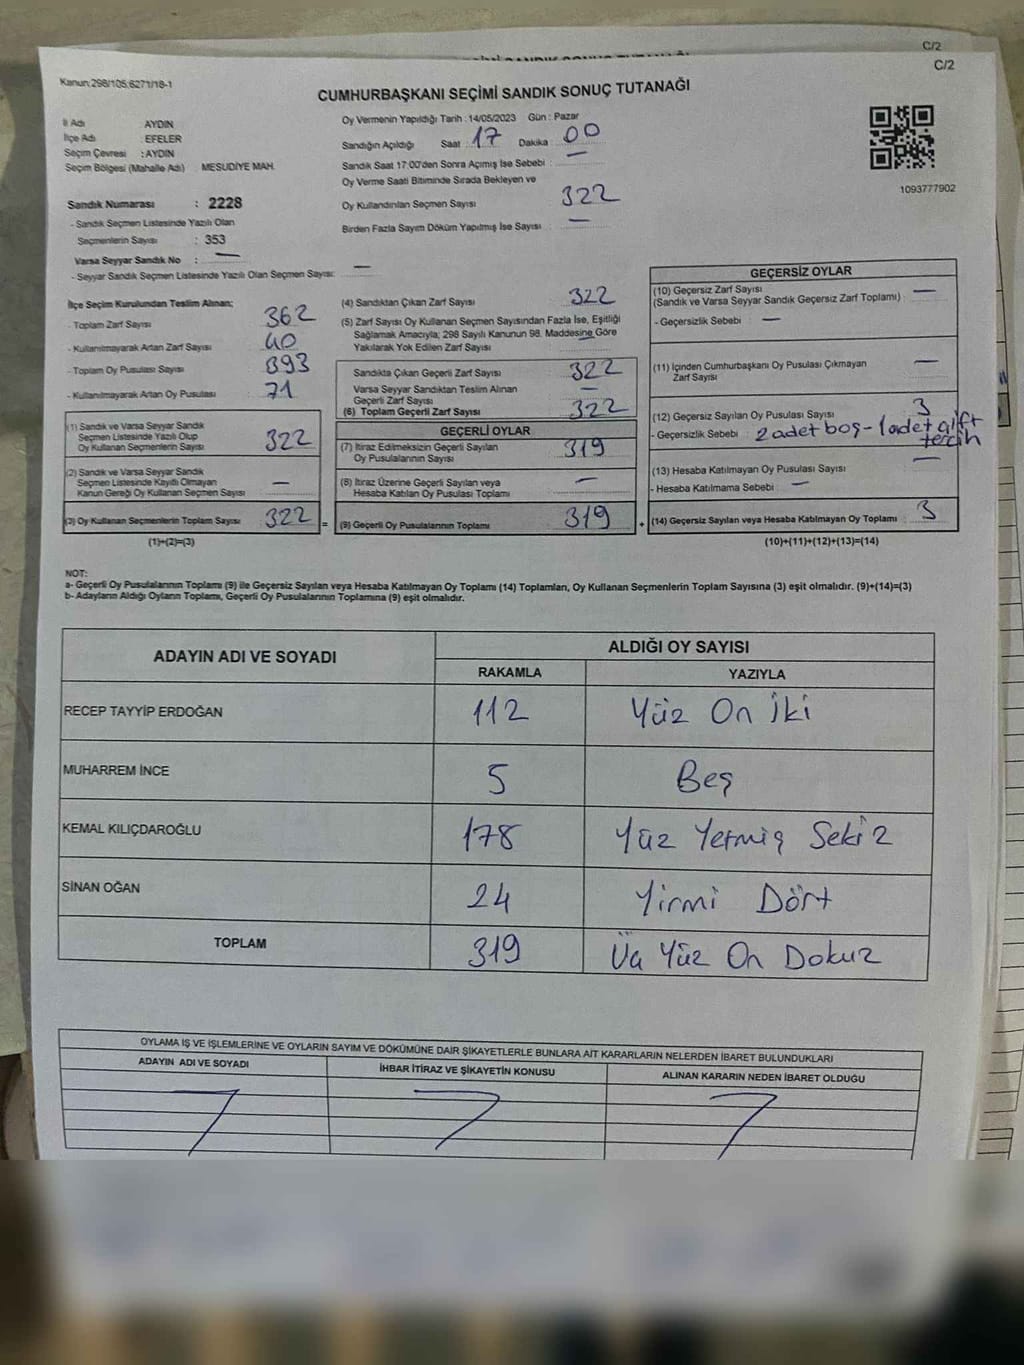 C/2
C/2
Kanun:298/105,6271/18-1
CUMHURBAŞKANI SEÇİMİ SANDIK SONUÇ TUTANAĞI
İl Adı AYDIN
İlçe Adı : EFELER
Seçim Çevresi : AYDIN
Seçim Bölgesi (Mahalle Adı) MESUDİYE MAH.
Oy Vermenin Yapıldığı Tarih : 14/05/2023 Gün : Pazar
Sandığın Açıldığı Saat : 17 Dakika : 00
Sandık Saat 17:00'den Sonra Açımış İse Sebebi : —
Oy Verme Saati Bitiminde Sırada Bekleyen ve
Oy Kullandırılan Seçmen Sayısı 322
Birden Fazla Sayım Döküm Yapılmış İse Sayısı : —
1093777902
Sandık Numarası : 2228
- Sandık Seçmen Listesinde Yazılı Olan
Seçmenlerin Sayısı : 353
Varsa Seyyar Sandık No : —
- Seyyar Sandık Seçmen Listesinde Yazılı Olan Seçmen Sayısı: —
İlçe Seçim Kurulundan Teslim Alınan;
- Toplam Zarf Sayısı 362
- Kullanılmayarak Artan Zarf Sayısı 40
- Toplam Oy Pusulası Sayısı 393
- Kullanılmayarak Artan Oy Pusulası 71
(1) Sandık ve Varsa Seyyar Sandık
Seçmen Listesinde Yazılı Olup
Oy Kullanan Seçmenlerin Sayısı 322
(2) Sandık ve Varsa Seyyar Sandık
Seçmen Listesinde Kayıtlı Olmayan
Kanun Gereği Oy Kullanan Seçmen Sayısı —
(3) Oy Kullanan Seçmenlerin Toplam Sayısı 322 =
(1)+(2)=(3)
(4) Sandıktan Çıkan Zarf Sayısı 322
(5) Zarf Sayısı Oy Kullanan Seçmen Sayısından Fazla İse, Eşitliği
Sağlamak Amacıyla; 298 Sayılı Kanunun 98. Maddesine Göre
Yakılarak Yok Edilen Zarf Sayısı —
Sandıkta Çıkan Geçerli Zarf Sayısı 322
Varsa Seyyar Sandıktan Teslim Alınan
Geçerli Zarf Sayısı —
(6) Toplam Geçerli Zarf Sayısı 322
GEÇERLİ OYLAR
(7) İtiraz Edilmeksizin Geçerli Sayılan
Oy Pusulalarının Sayısı 319
(8) İtiraz Üzerine Geçerli Sayılan veya
Hesaba Katılan Oy Pusulası Toplamı —
(9) Geçerli Oy Pusulalarının Toplamı 319 +
GEÇERSİZ OYLAR
(10) Geçersiz Zarf Sayısı
(Sandık ve Varsa Seyyar Sandık Geçersiz Zarf Toplamı) : —
- Geçersizlik Sebebi : —
(11) İçinden Cumhurbaşkanı Oy Pusulası Çıkmayan
Zarf Sayısı —
(12) Geçersiz Sayılan Oy Pusulası Sayısı 3
- Geçersizlik Sebebi : 2 adet boş - 1 adet çift
tercih
(13) Hesaba Katılmayan Oy Pusulası Sayısı —
- Hesaba Katılmama Sebebi : —
(14) Geçersiz Sayılan veya Hesaba Katılmayan Oy Toplamı 3
(10)+(11)+(12)+(13)=(14)
NOT:
a- Geçerli Oy Pusulalarının Toplamı (9) ile Geçersiz Sayılan veya Hesaba Katılmayan Oy Toplamı (14) Toplamları, Oy Kullanan Seçmenlerin Toplam Sayısına (3) eşit olmalıdır. (9)+(14)=(3)
b- Adayların Aldığı Oyların Toplamı, Geçerli Oy Pusulalarının Toplamına (9) eşit olmalıdır.
ADAYIN ADI VE SOYADI ALDIĞI OY SAYISI
RAKAMLA YAZIYLA
RECEP TAYYİP ERDOĞAN 112 Yüz On İki
MUHARREM İNCE 5 Beş
KEMAL KILIÇDAROĞLU 178 Yüz Yetmiş Sekiz
SİNAN OĞAN 24 Yirmi Dört
TOPLAM 319 Üç Yüz On Dokuz
OYLAMA İŞ VE İŞLEMLERİNE VE OYLARIN SAYIM VE DÖKÜMÜNE DAİR ŞİKAYETLERLE BUNLARA AİT KARARLARIN NELERDEN İBARET BULUNDUKLARI
ADAYIN ADI VE SOYADI İHBAR İTİRAZ VE ŞİKAYETİN KONUSU ALINAN KARARIN NEDEN İBARET OLDUĞU